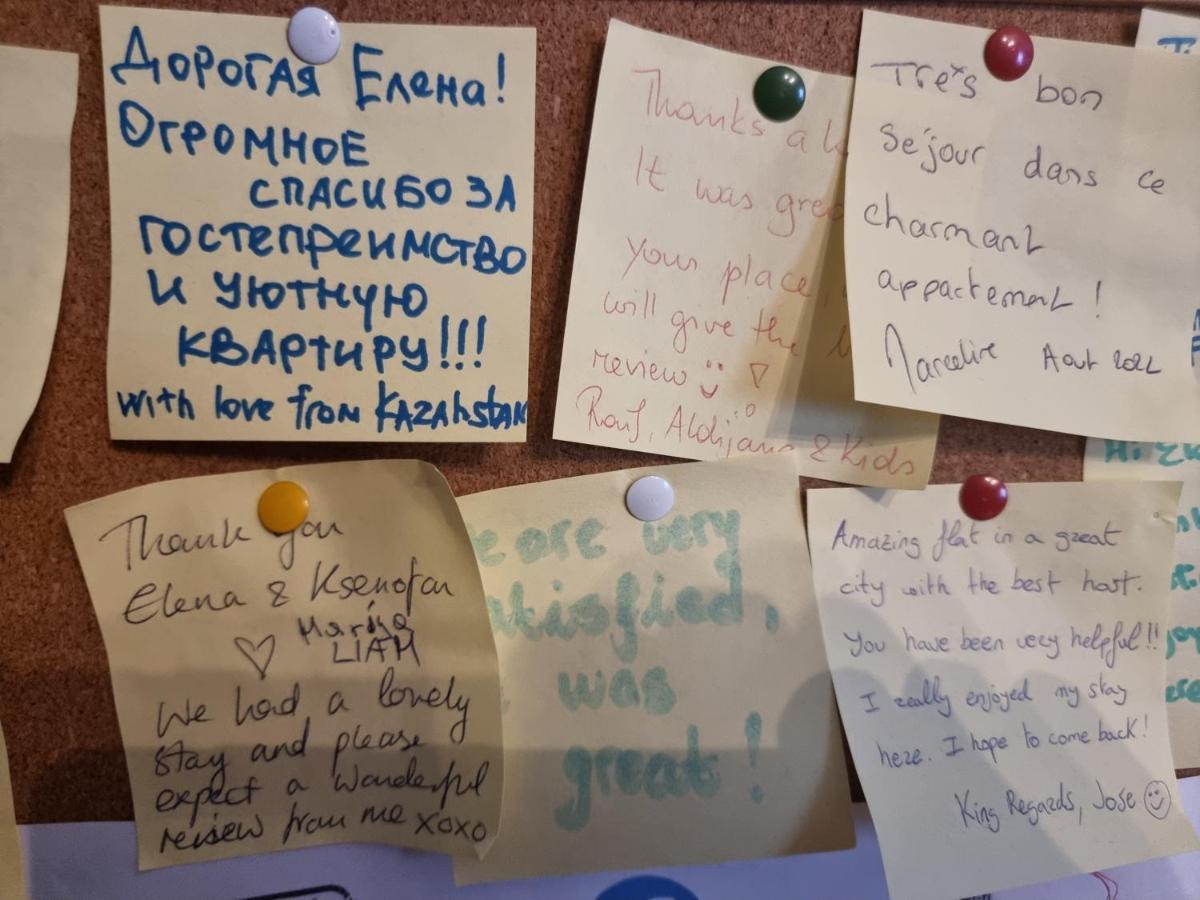 Дорогая Елена!
Огромное
спасибо за
гостепреимство
и уютную
квартиру!!!
with love from Kazahstan
Thanks a
It was
your place,
will give the
review
Rauf, Aldijana & Kids
Tres bon
Séjour dans ce
charmant
appartement!
Marceline Aout 2022
Thank you
Elena & Ksenofon
Marija
LIAM
We had a lovely
stay and please
expect a wonderful
review from me xoxo
are very
was
great!
Amazing flat in a great
city with the best host.
You have been very helpful!!
I really enjoyed my stay
here. I hope to come back!
King Regards, Jose